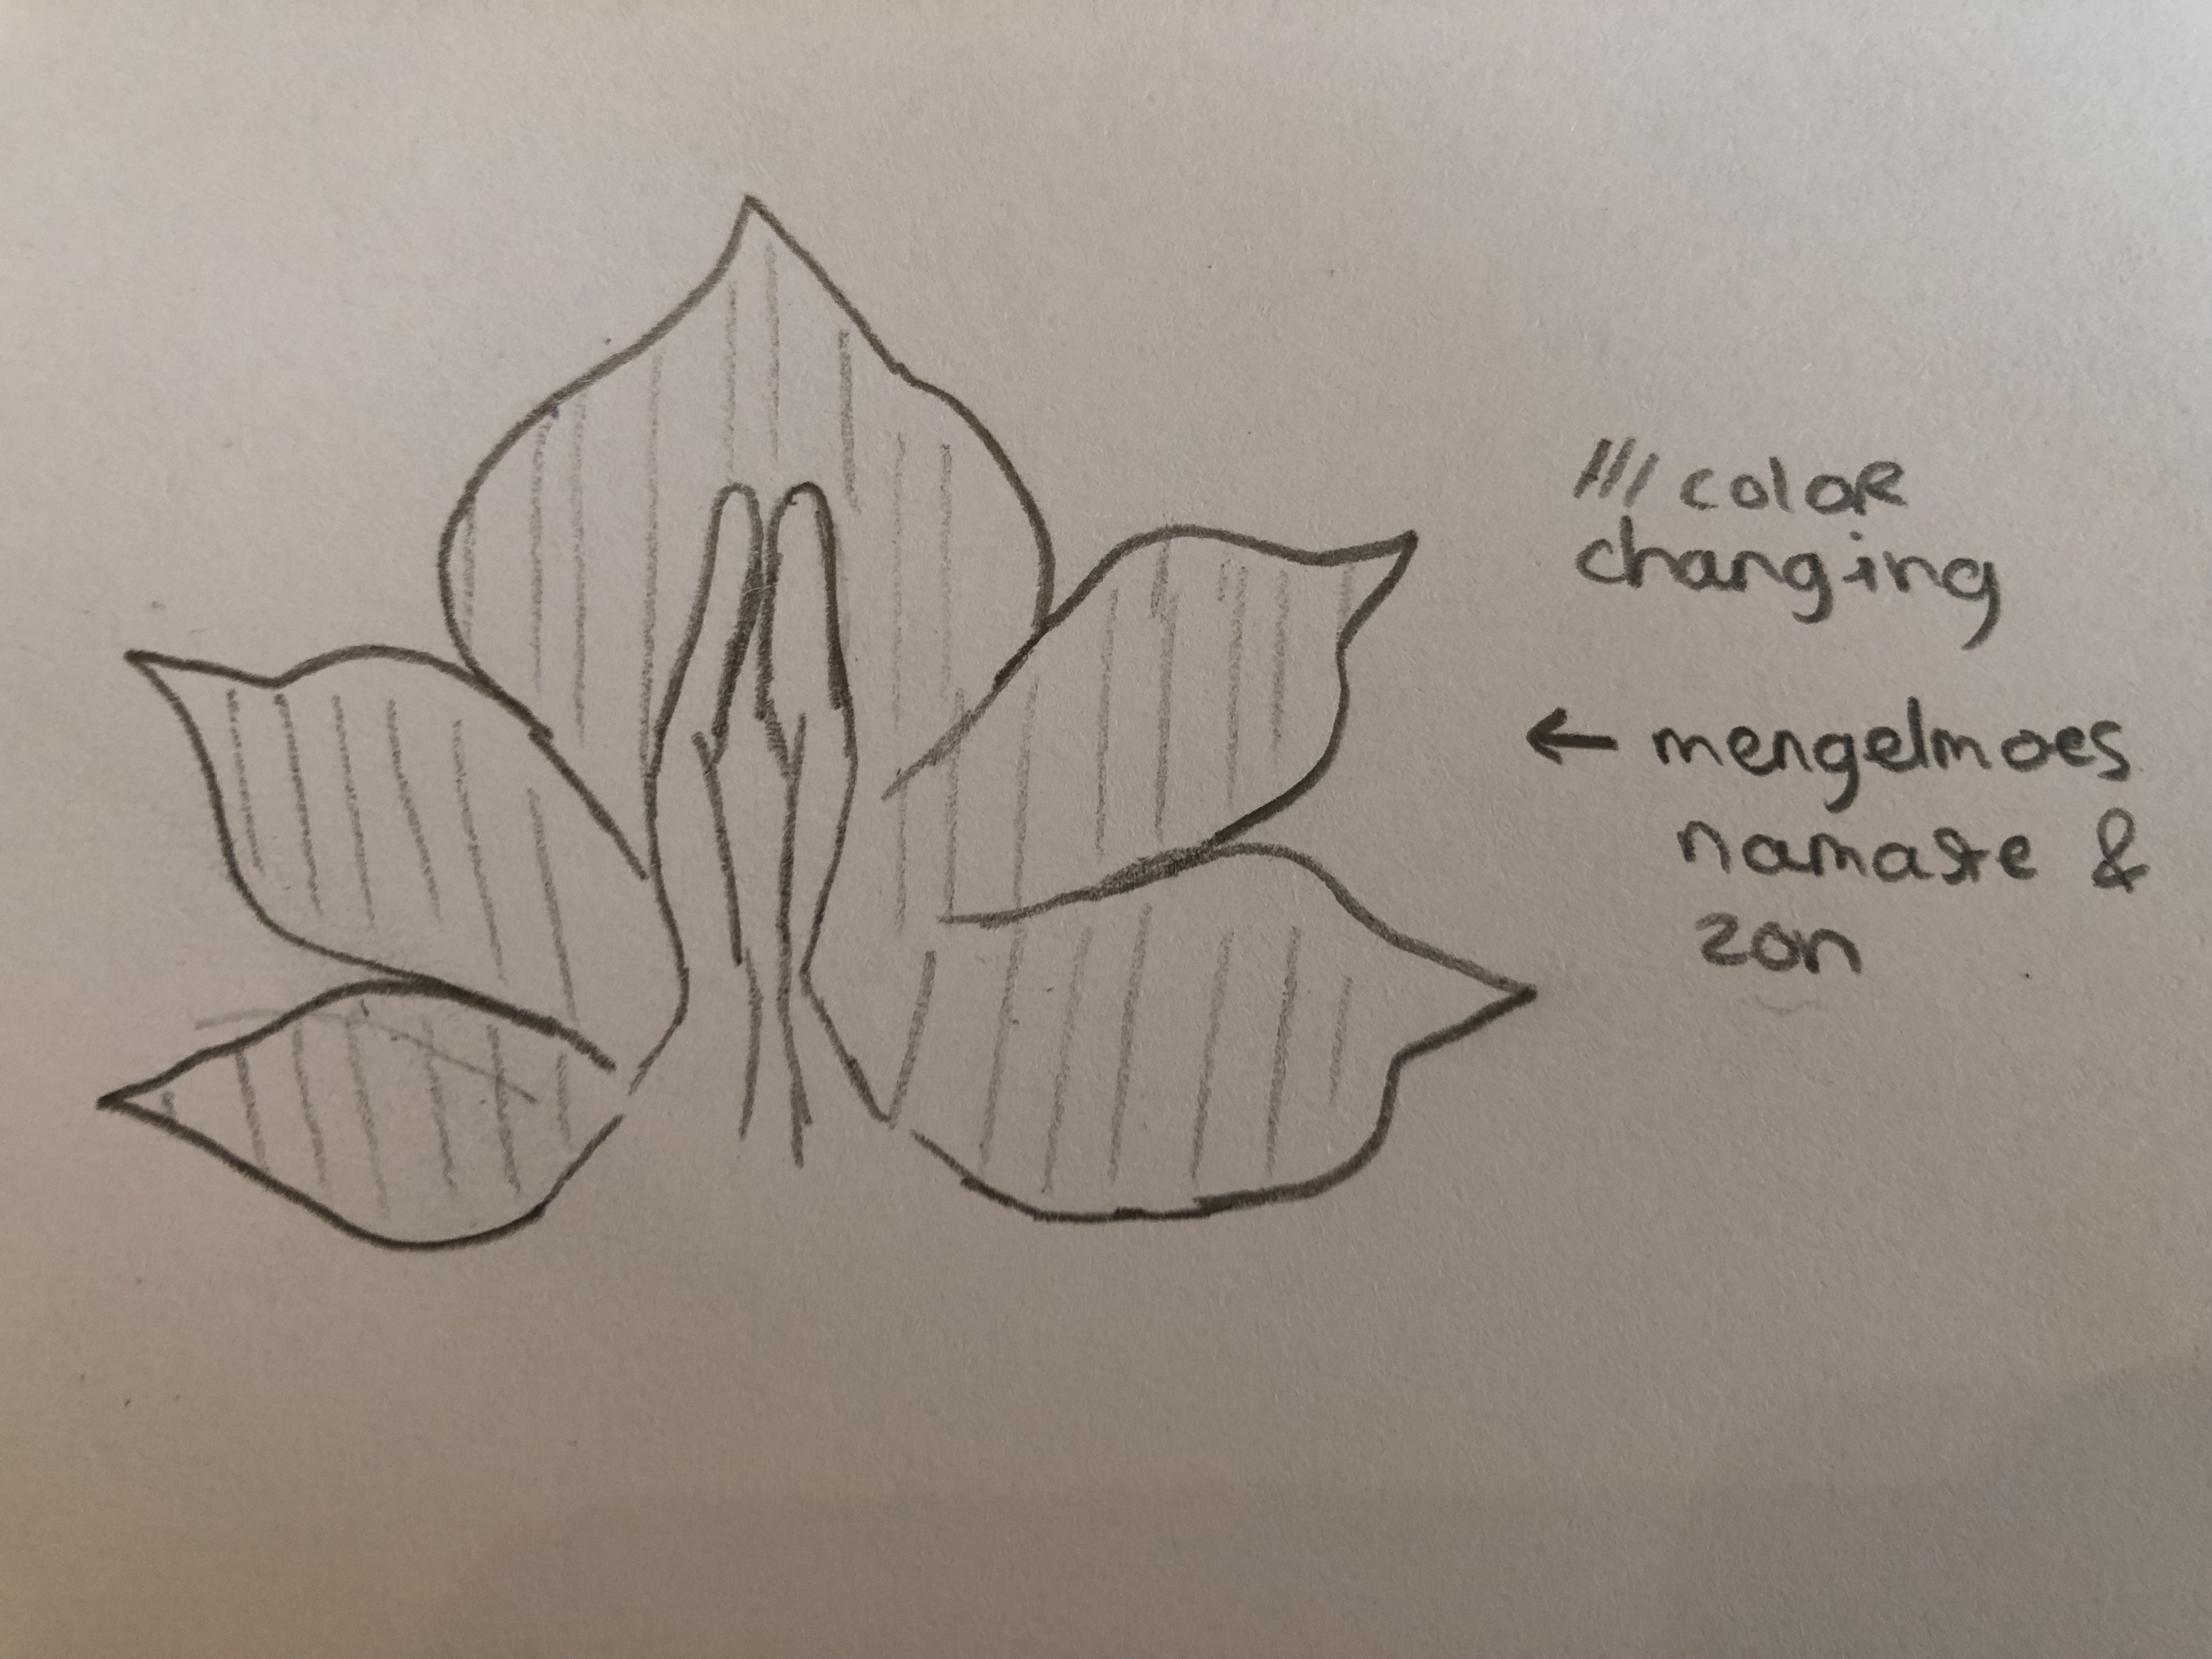 /// color
changing
← mengelmoes
namaste &
zon